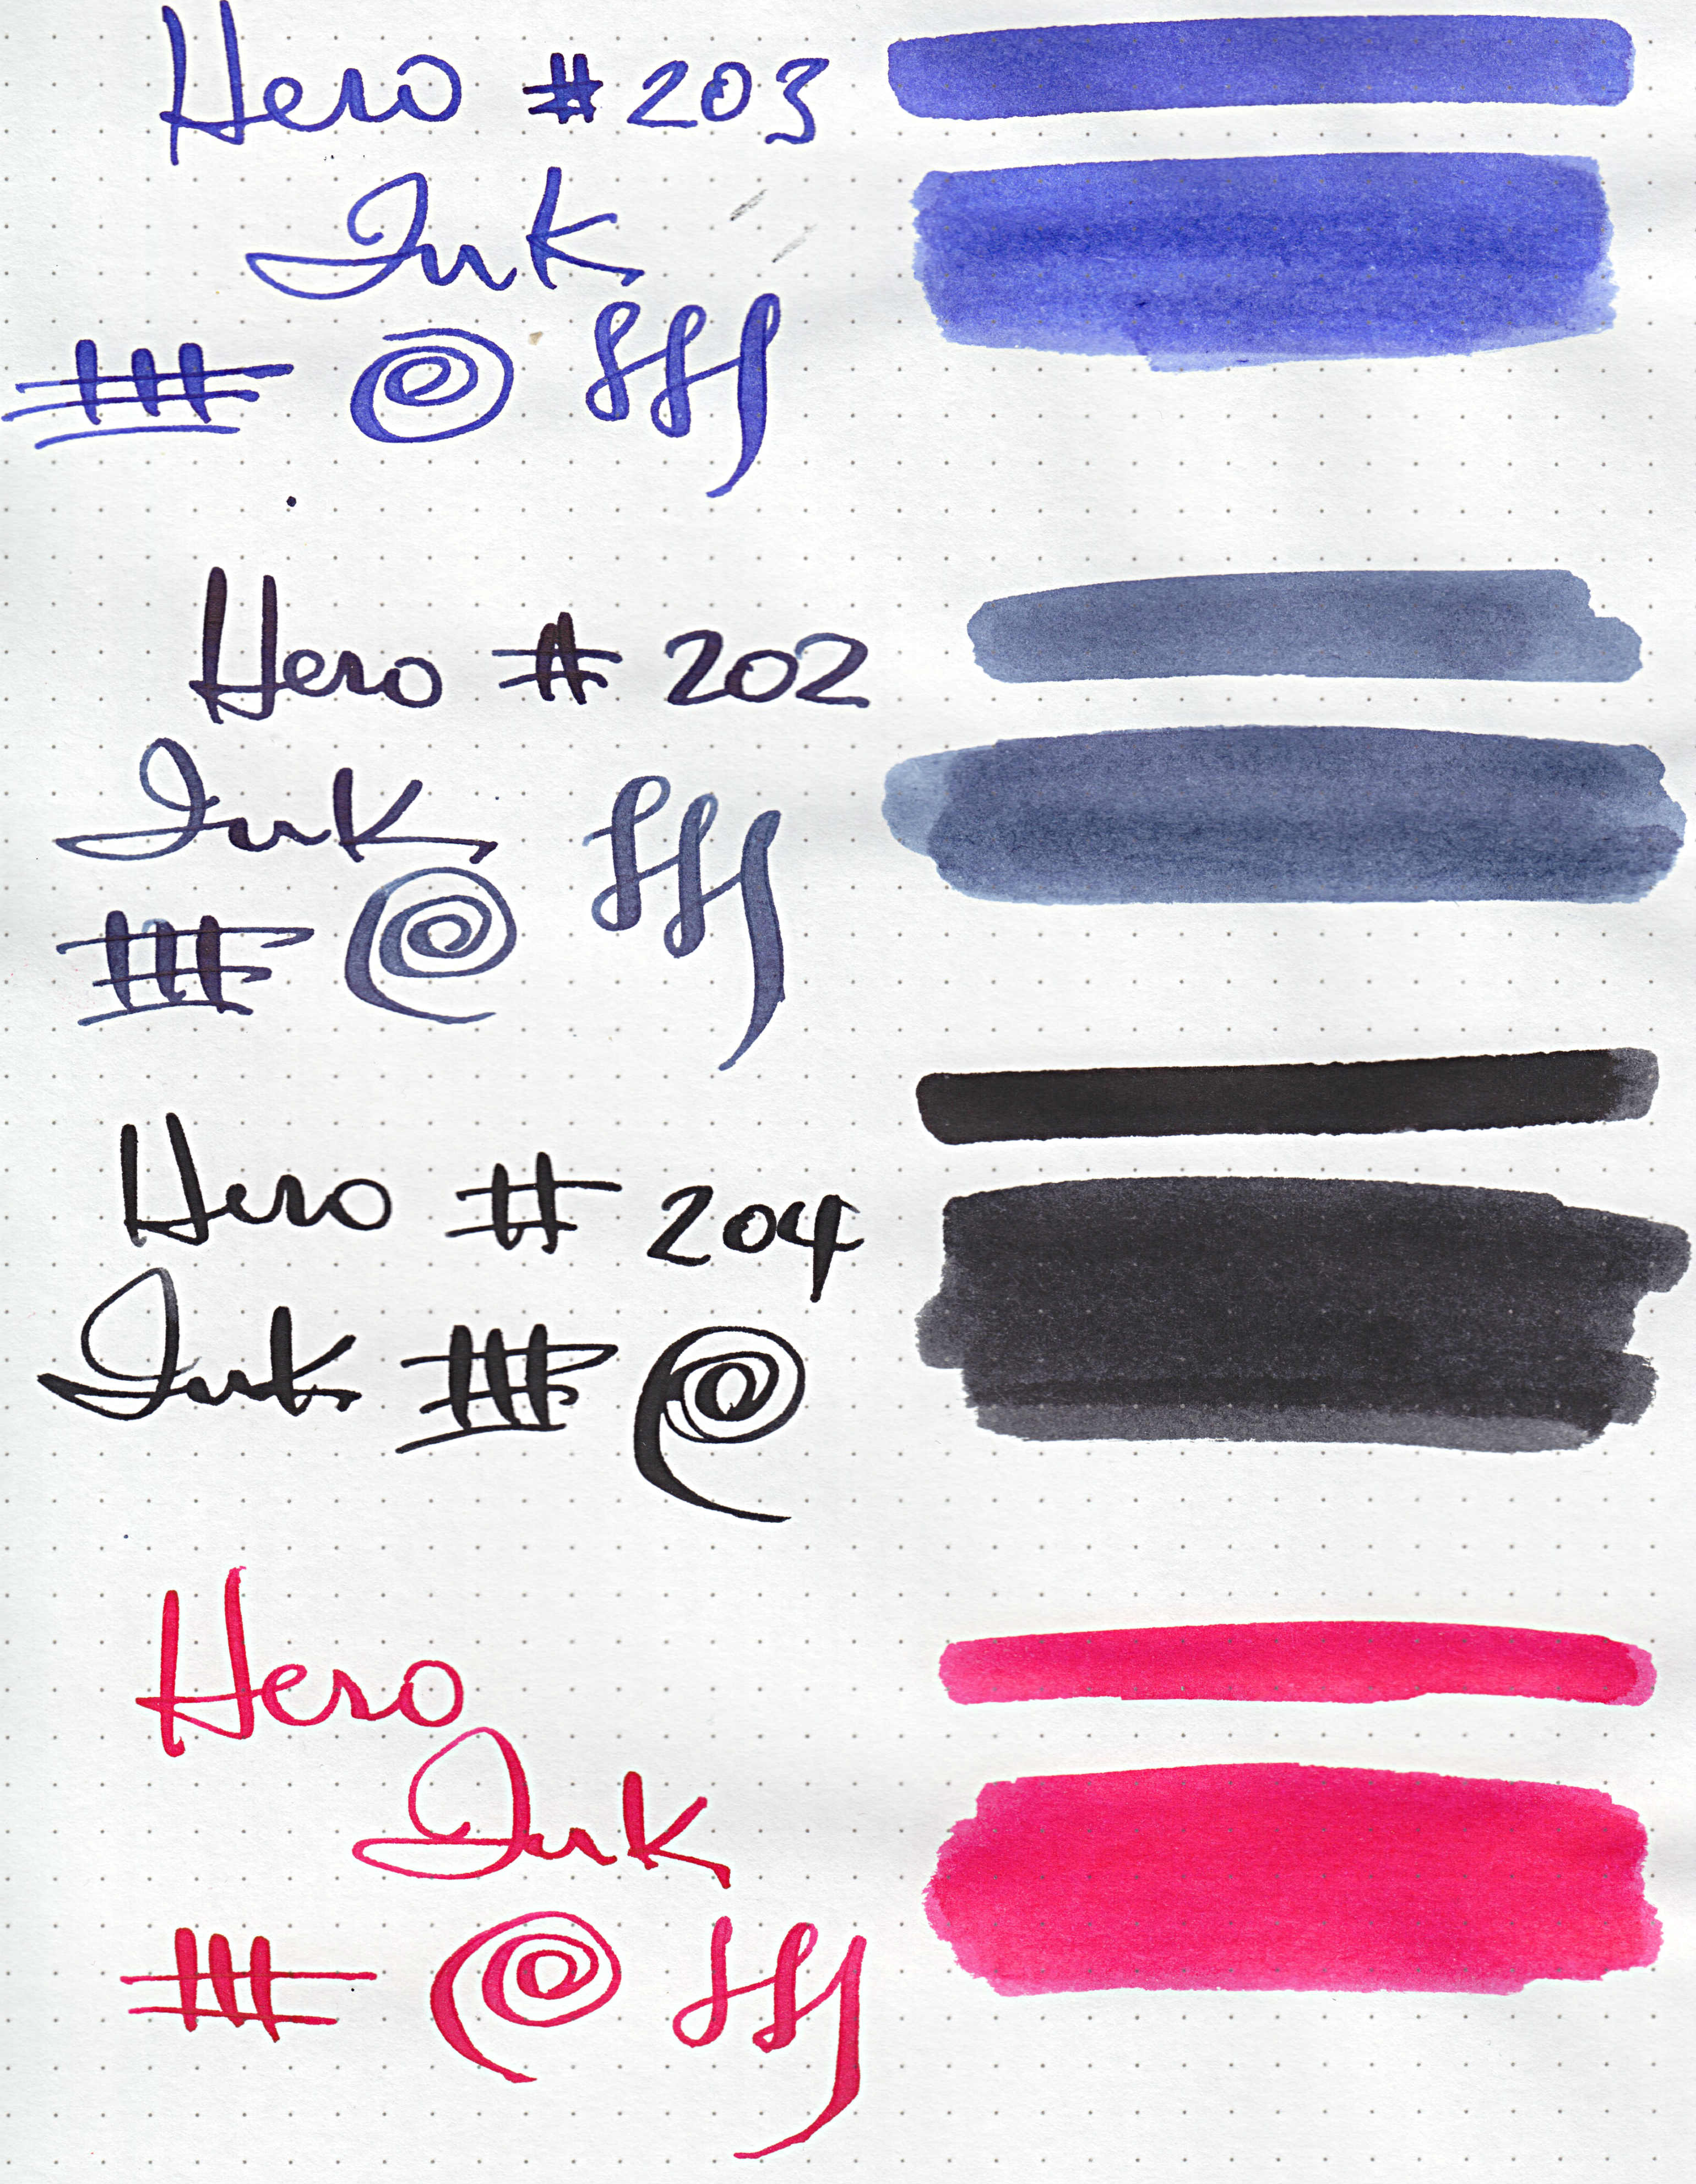 Hero # 203
Ink
Hero # 202
Ink
Hero # 204
Ink
Hero
Ink